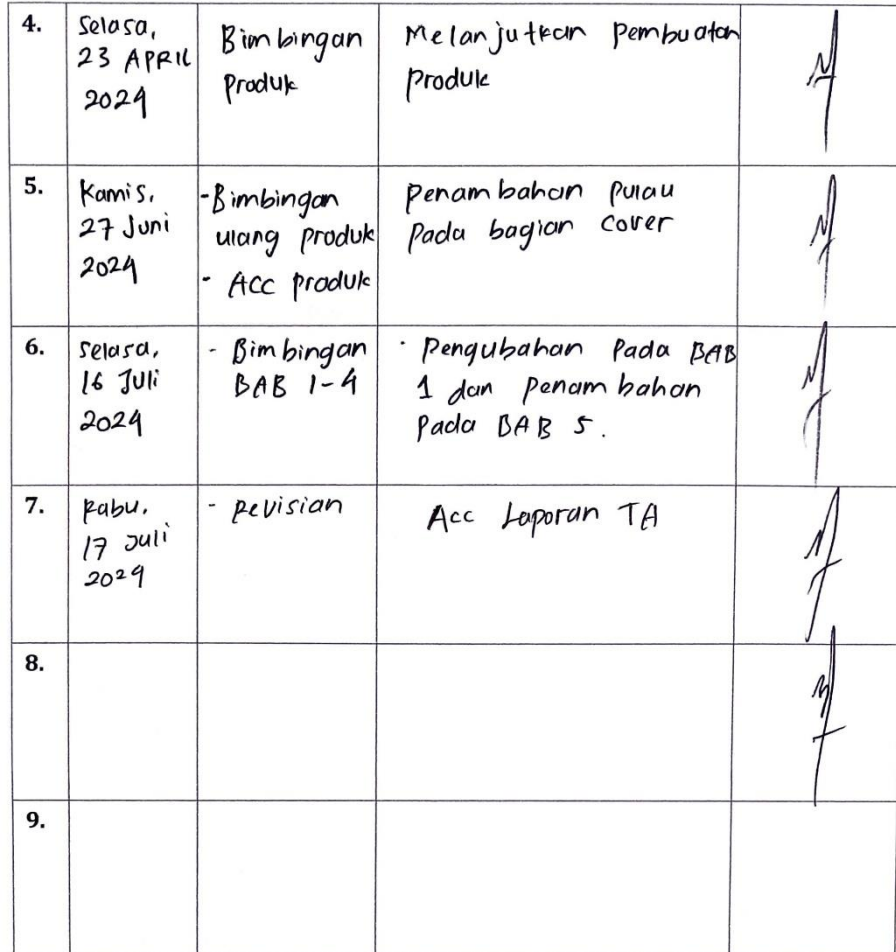 4.
Selasa,
23 APRIL
2024
Bimbingan
Produk
Melanjutkan Pembuatan
Produk
5.
Kamis,
27 Juni
2024
-Bimbingan
ulang Produk
- ACC Produk
Penambahan Pulau
Pada bagian Cover
6.
Selasa,
16 Juli
2024
- Bimbingan
BAB 1-4
· Pengubahan Pada BAB
1 dan Penambahan
Pada BAB 5.
7.
Rabu,
17 Juli
2024
- Revisian
Acc Laporan TA
8.
9.